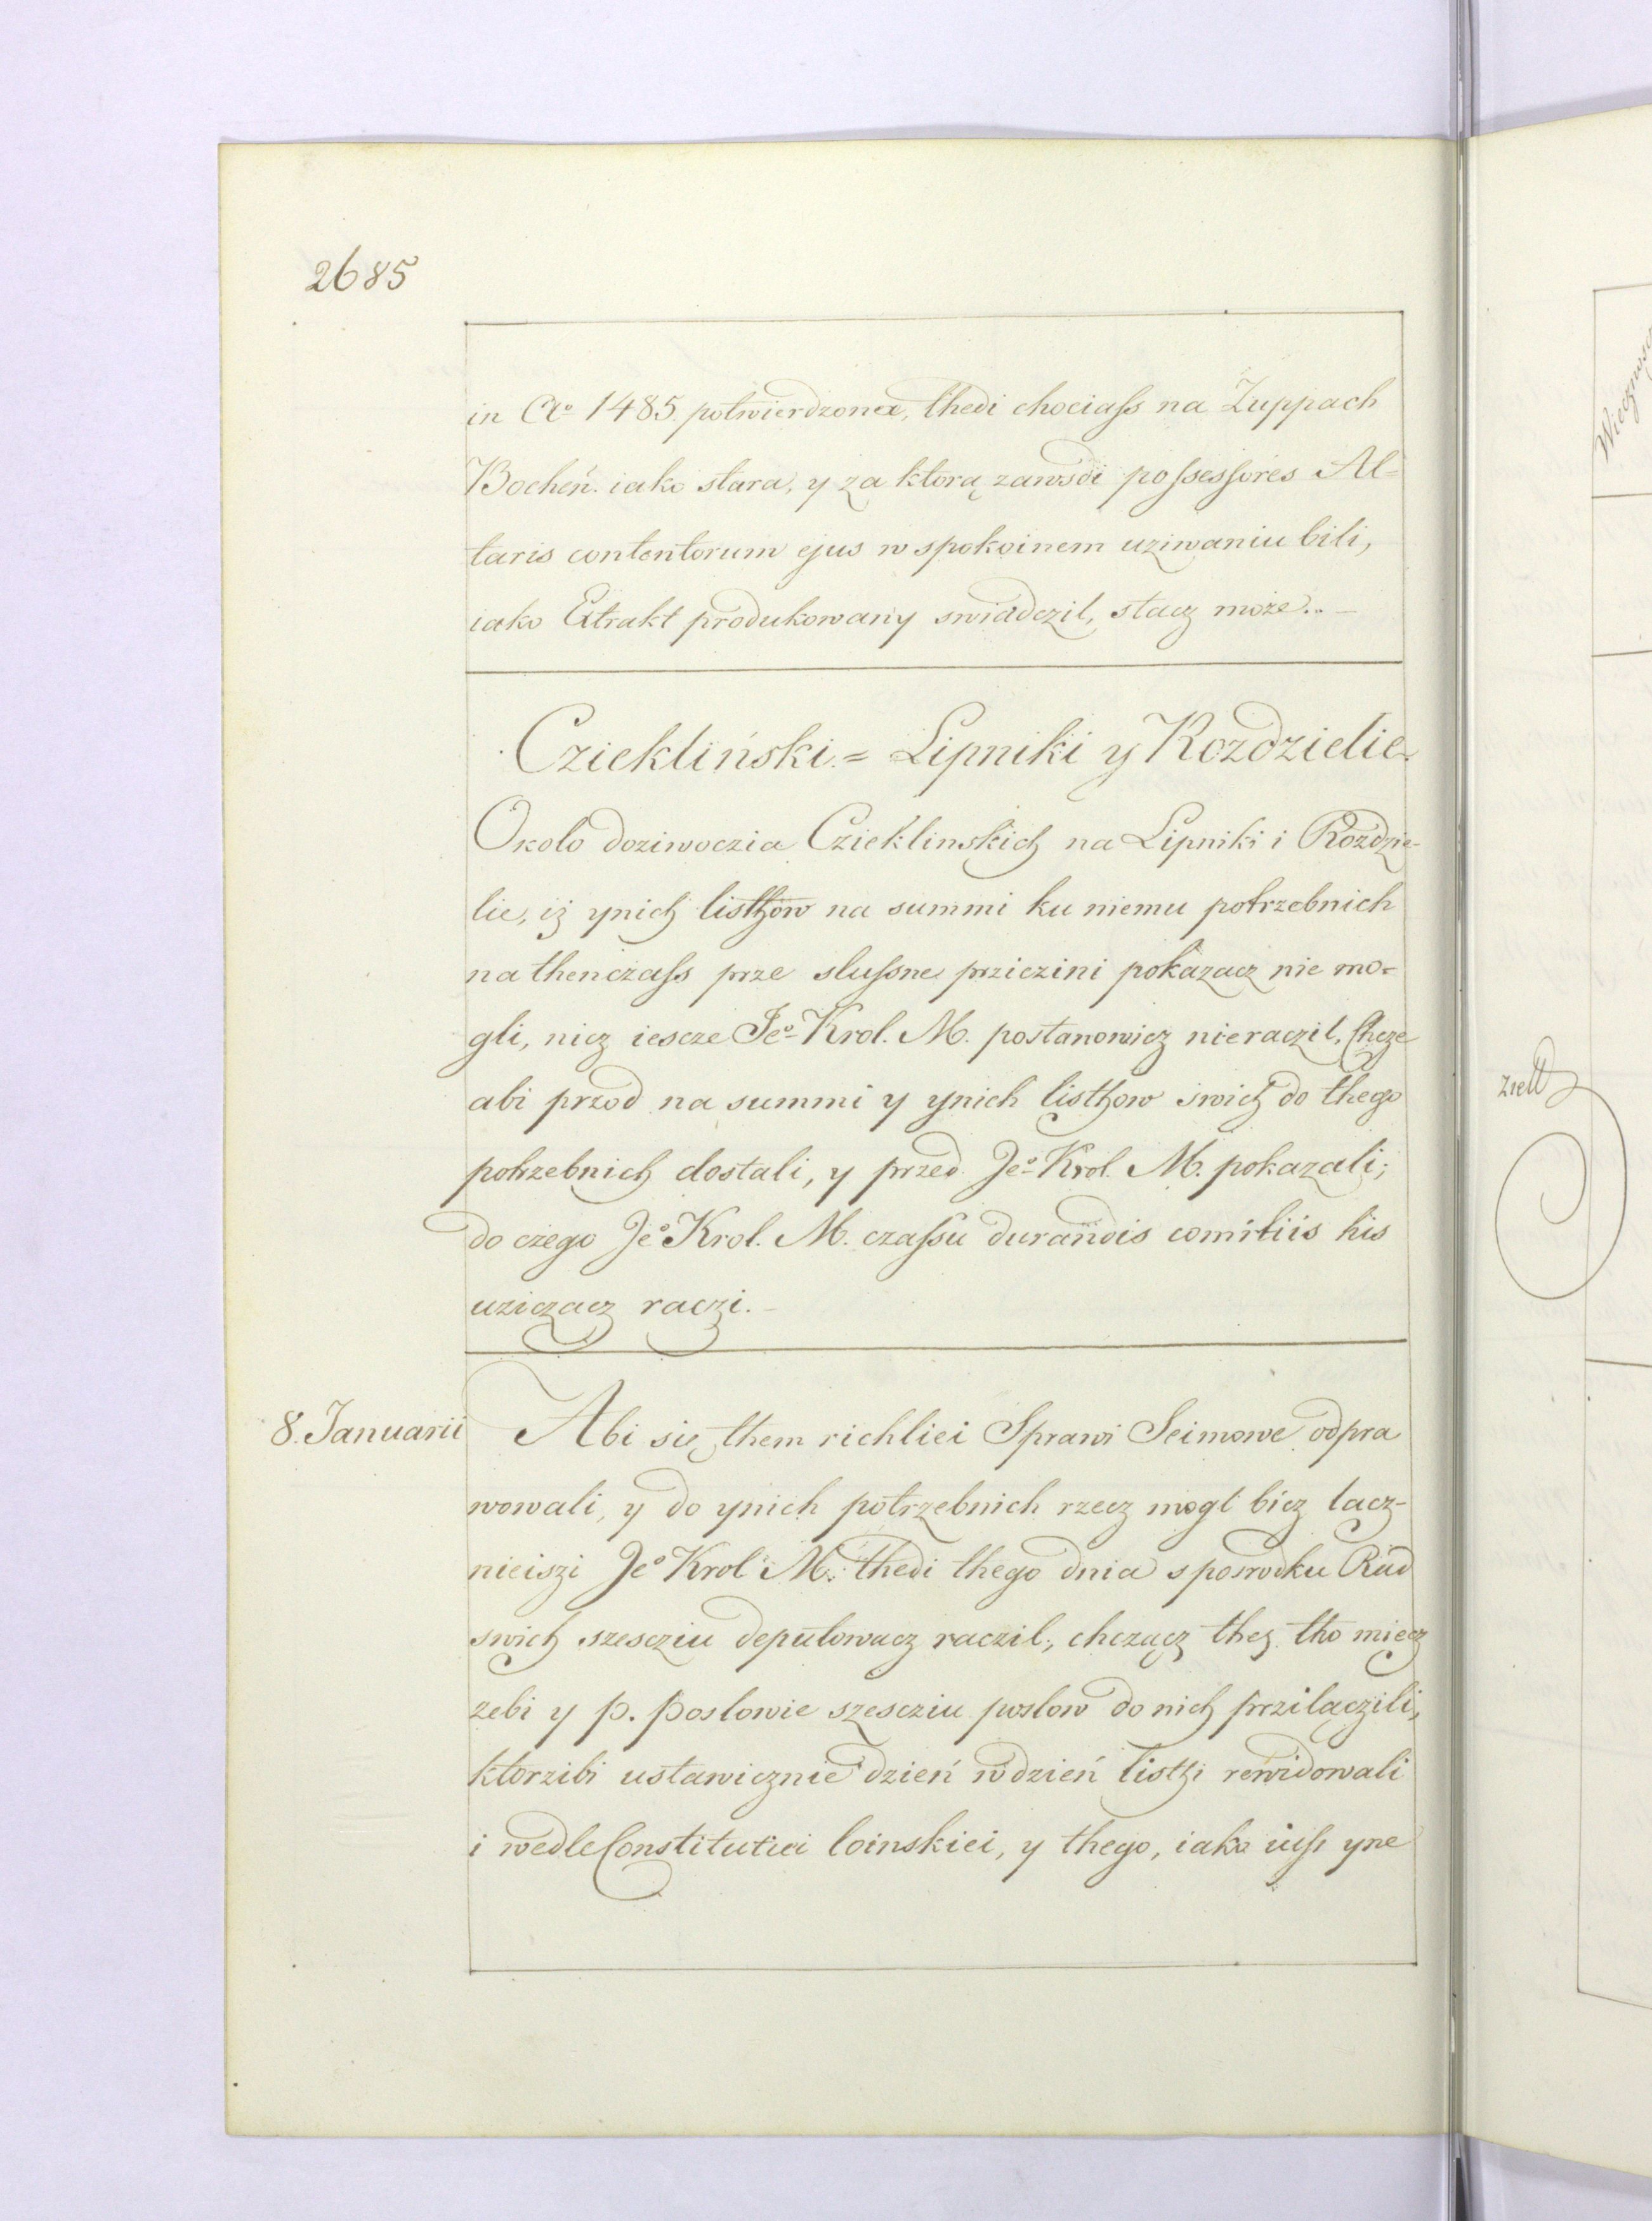 2685
in Aº 1485 potwierdzona, thedi chociaſs na Zuppach
Bocheń. iako stara, y za ktorą zawsdi poſseſsores Al-
taris contentorum ejus w spokoinem uziwaniu bili,
iako Extrakt produkowany swiadczil, stacz może..–
Czieklinski = Lipniki y Rozdzielie
Okolo doziwoczia Czieklinskich na Lipniki i Rozdzie-
lie, iz ynich listhow na summi ku niemu potrzebnich
na thenczaſs prze sluſsne prziczini pokazacz nie mo-
gli, nicz iescze Jeº Krol. M. postanowicz nieraczil, Chcze
abi przod na summi y ynich listhow swich do thego
potrzebnich dostali, y przed Jeº Krol. M. pokazali;
do czego Jeº Krol. M. czaſsu durandis comitiis his
uziczacz raczi.–
8. Januarii
Abi się them richliei Sprawi Seimowe odpra
wowali, y do ynich potrzebnich rzecz mogl bicz lacz-
nieiszi Jeº Krol M. thedi thego dnia sposrodku Rad
swich szescziu deputowacz raczil, chcząc thez tho miecz
zebi y P. Poslowie szescziu poslow do nich przilączili,
ktorzibi ustawicznie dzień w dzień listhi rewidowali
i wedle Constitutiei loinskiei, y thego, iako iuſs yne
zielt